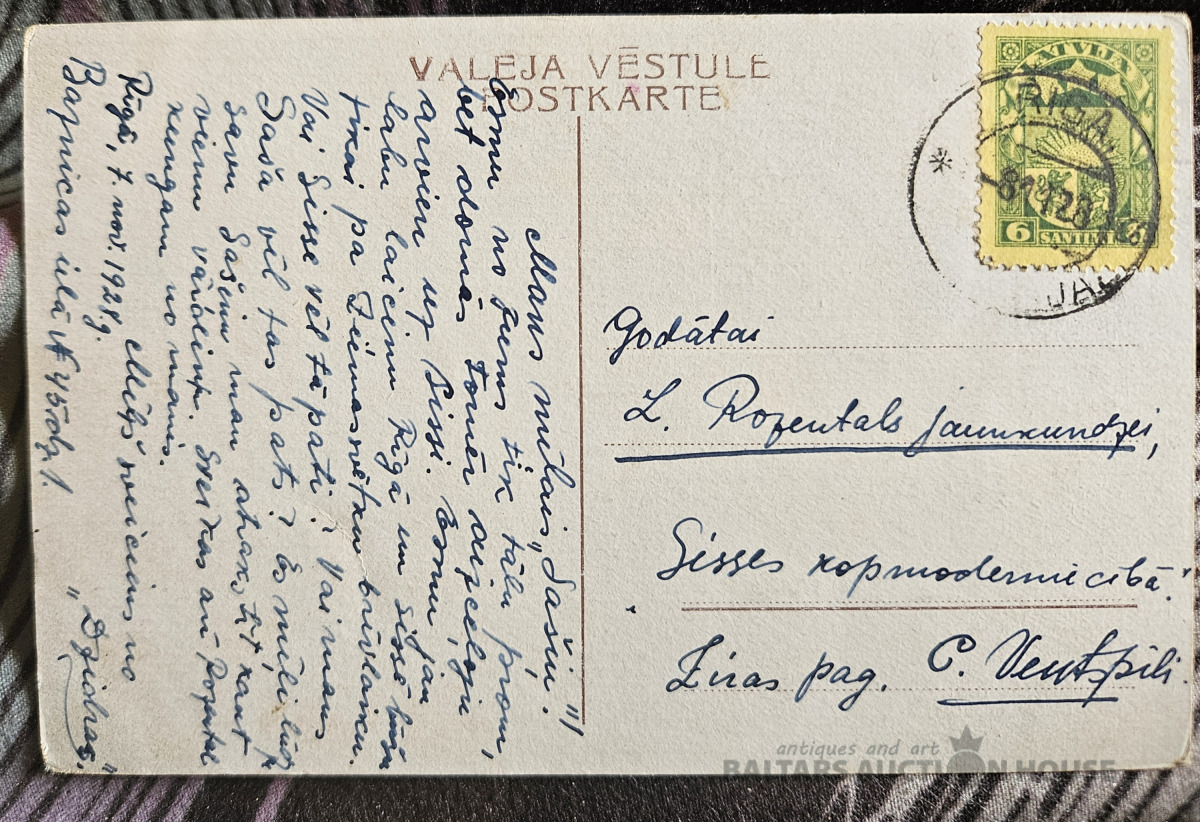 VALĒJA VĒSTULE
POSTKARTE
LATVIJA
6 SANTIMI 6
RIGA
Mans mīļais „Sašiņ!"
Esmu no Jums tik tālu prom,
bet domās tomēr aizceļoju
arvien uz Sissi. Esmu jau
labu laiciņu Rīgā un Sissē būšu
tikai pa Ziemassvētku brīvlaiku.
Vai Sisse vēl tāpati? Vai mans
Saša vēl tas pats? Es mīļi lūgtu
savu Sašiņu man atrakstīt kaut
vienu vārdiņu. Sveikas arī Rozental
kungam no manis.
Rīgā, 7. nov. 1928 g. Mīļš sveiciens no
Baznīcas ielā № 45 dz. 1. „Dzidras."
Godātai
L. Rozentals jaunkundzei,
Sisses kopmoderniecībā.
Ziras pag. C. Ventspili.
antiques and art
BALTARS AUCTION HOUSE